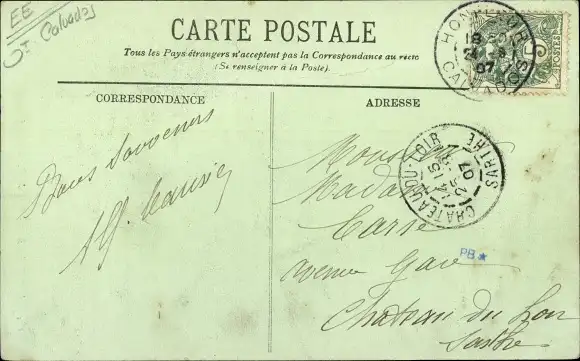 EE
Calvados
CARTE POSTALE
Tous les Pays étrangers n'acceptent pas la Correspondance au recto
(Se renseigner à la Poste).
CORRESPONDANCE
ADRESSE
HONFLEUR
CALVADOS
07
POSTES
5
CHATEAU-DU-LOIR
SARTHE
07
Bons Souvenirs
Alf.
Monsieur
Madame
Carré
avenue Gare
Chateau du Loir
Sarthe
PB★